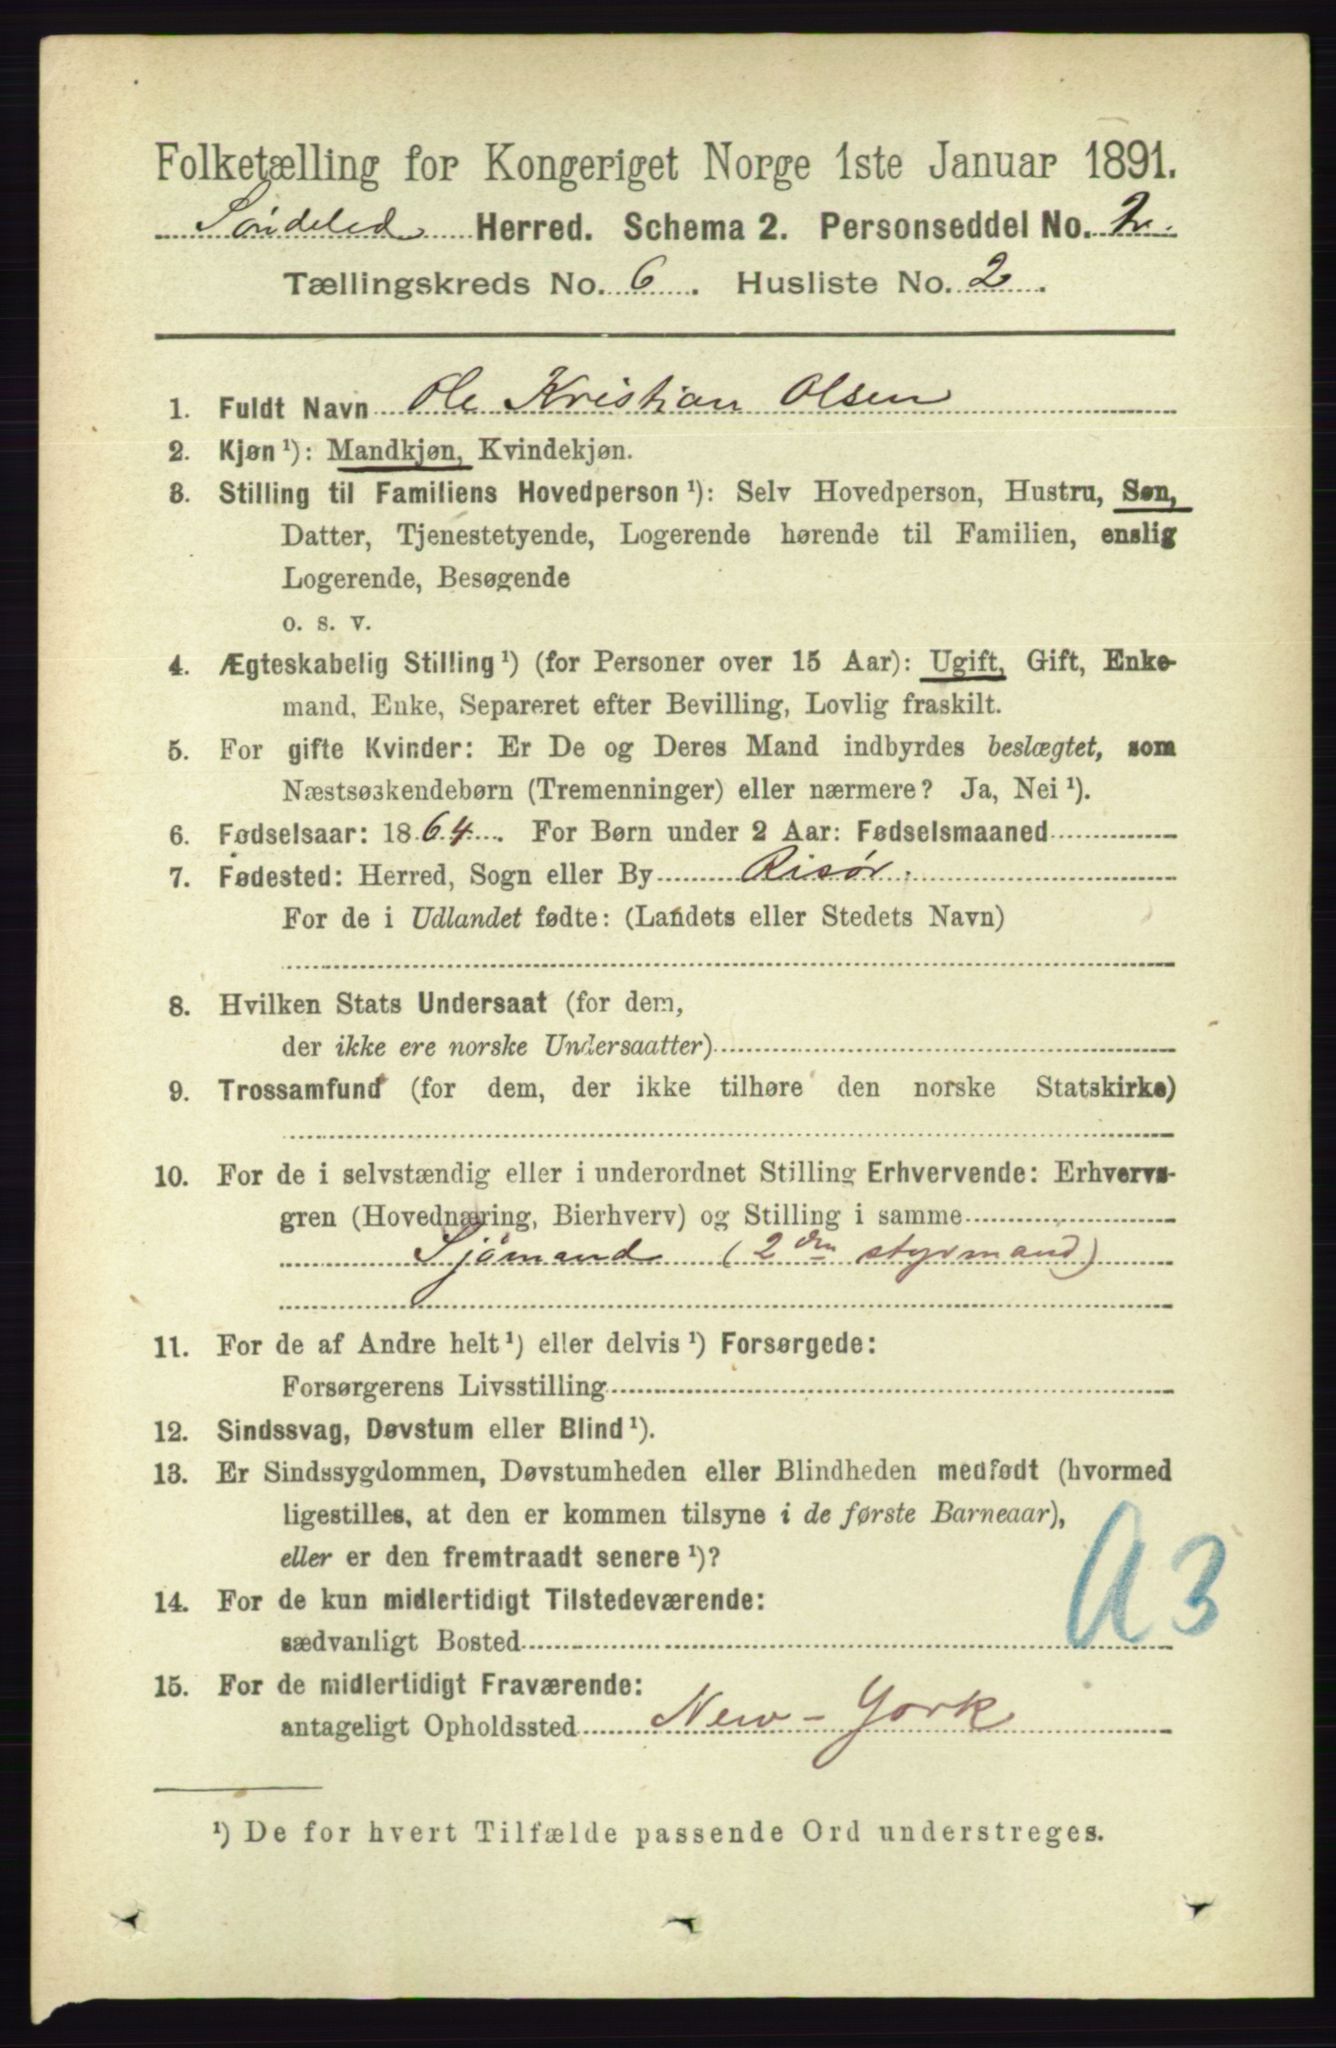 Folketælling for Kongeriget Norge 1ste Januar 1891.
Söndeled Herred. Schema 2. Personseddel No. 2.
Tællingskreds No. 6. Husliste No. 2.
1. Fuldt Navn Ole Kristian Olsen
2. Kjøn ¹): Mandkjøn, Kvindekjøn.
3. Stilling til Familiens Hovedperson ¹): Selv Hovedperson, Hustru, Søn,
Datter, Tjenestetyende, Logerende hørende til Familien, enslig
Logerende, Besøgende
o. s. v.
4. Ægteskabelig Stilling ¹) (for Personer over 15 Aar): Ugift, Gift, Enke-
mand, Enke, Separeret efter Bevilling, Lovlig fraskilt.
5. For gifte Kvinder: Er De og Deres Mand indbyrdes beslægtet, som
Næstsøskendebørn (Tremenninger) eller nærmere? Ja, Nei ¹).
6. Fødselsaar: 1864. For Børn under 2 Aar: Fødselsmaaned
7. Fødested: Herred, Sogn eller By Risör.
For de i Udlandet fødte: (Landets eller Stedets Navn)
8. Hvilken Stats Undersaat (for dem,
der ikke ere norske Undersaatter)
9. Trossamfund (for dem, der ikke tilhøre den norske Statskirke)
10. For de i selvstændig eller i underordnet Stilling Erhvervende: Erhvervs-
gren (Hovednæring, Bierhverv) og Stilling i samme
Sjömand (2den styrmand)
11. For de af Andre helt ¹) eller delvis ¹) Forsørgede:
Forsørgerens Livsstilling
12. Sindssvag, Døvstum eller Blind ¹).
13. Er Sindssygdommen, Døvstumheden eller Blindheden medfødt (hvormed
ligestilles, at den er kommen tilsyne i de første Barneaar),
eller er den fremtraadt senere ¹)?
A3
14. For de kun midlertidigt Tilstedeværende:
sædvanligt Bosted
15. For de midlertidigt Fraværende:
antageligt Opholdssted New-York
¹) De for hvert Tilfælde passende Ord understreges.